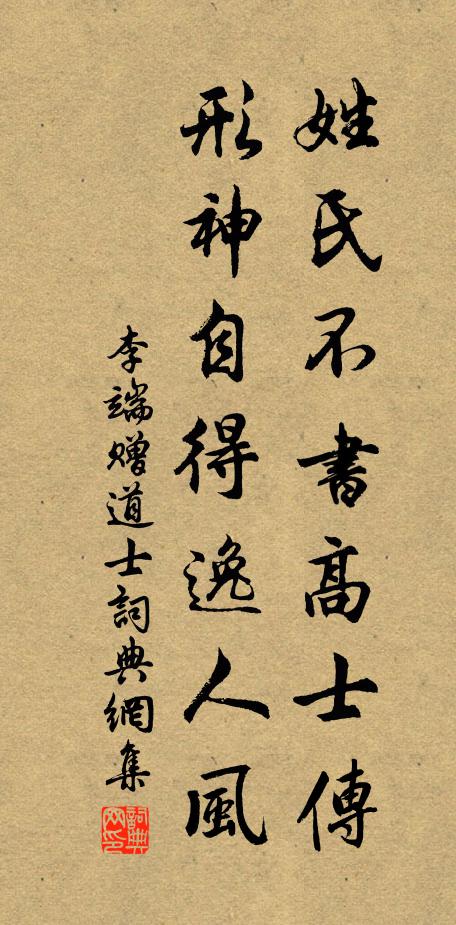 姓氏不書高士傳
形神自得逸人風
李端贈道士詞典網集
詞典網印